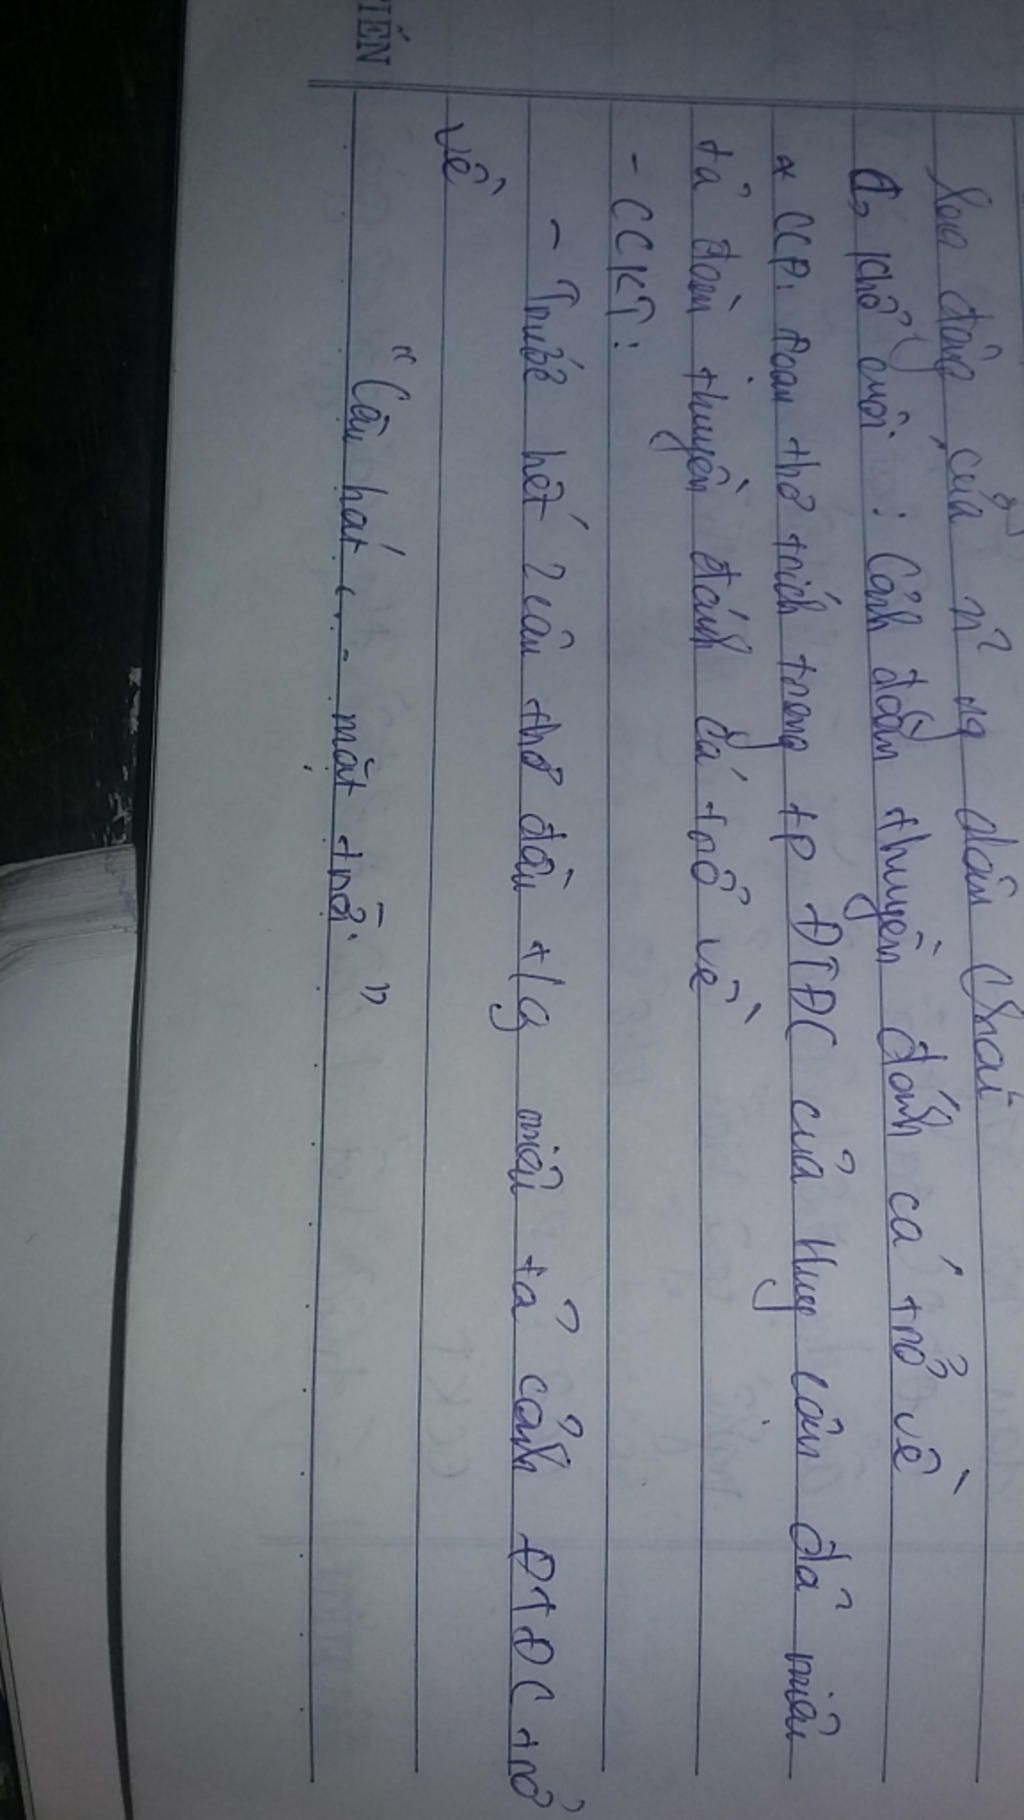 lao động của n² ng dân chài
d, khổ cuối : Cảnh đoàn thuyền đánh cá trở về
* CCĐ: Đoạn thơ trích trong tp ĐTĐC của Huy Cận đã miêu
tả đoàn thuyền đánh cá trở về
- CCKT :
- Trước hết 2 câu thơ đầu t/g miêu tả cảnh ĐTĐC trở
về
"Câu hát .... mặt trời."
TIẾN